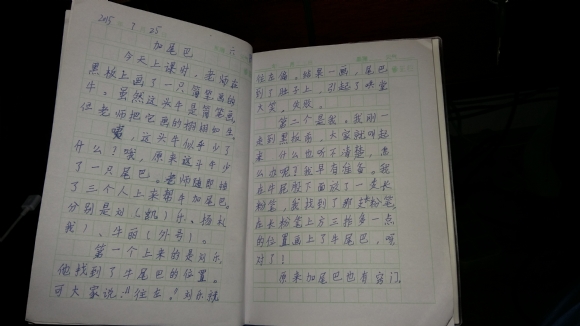 2015 9 25
加尾巴
今天上课时，老师在
黑板上画了一只简笔画的
牛。虽然这头牛是简笔画，
但老师把它画的栩栩如生。
噢，这头牛似乎少了
什么？哦，原来这牛牛少
了一只尾巴。老师随即请
了三个人上来帮牛加尾巴。
分别是刘（凯）乐、杨礼
我）、牛丽（外号）。
第一个上来的是刘乐，
他找到了牛尾巴的位置。
可大家说：“往左。”刘乐就
往左画。结果一画，尾巴
到了肚子上，引起了哄堂
大笑，失败。
第二个是我。我刚一
走到黑板前，大家就叫起
来，什么也听不清楚，怎
么办呢？我早有准备。我
在牛尾股下面放了一支长
粉笔，我找到了那支粉笔，
在长粉笔上方三拍多一点
的位置画上了牛尾巴，可
对了！
原来加尾巴也有窍门。